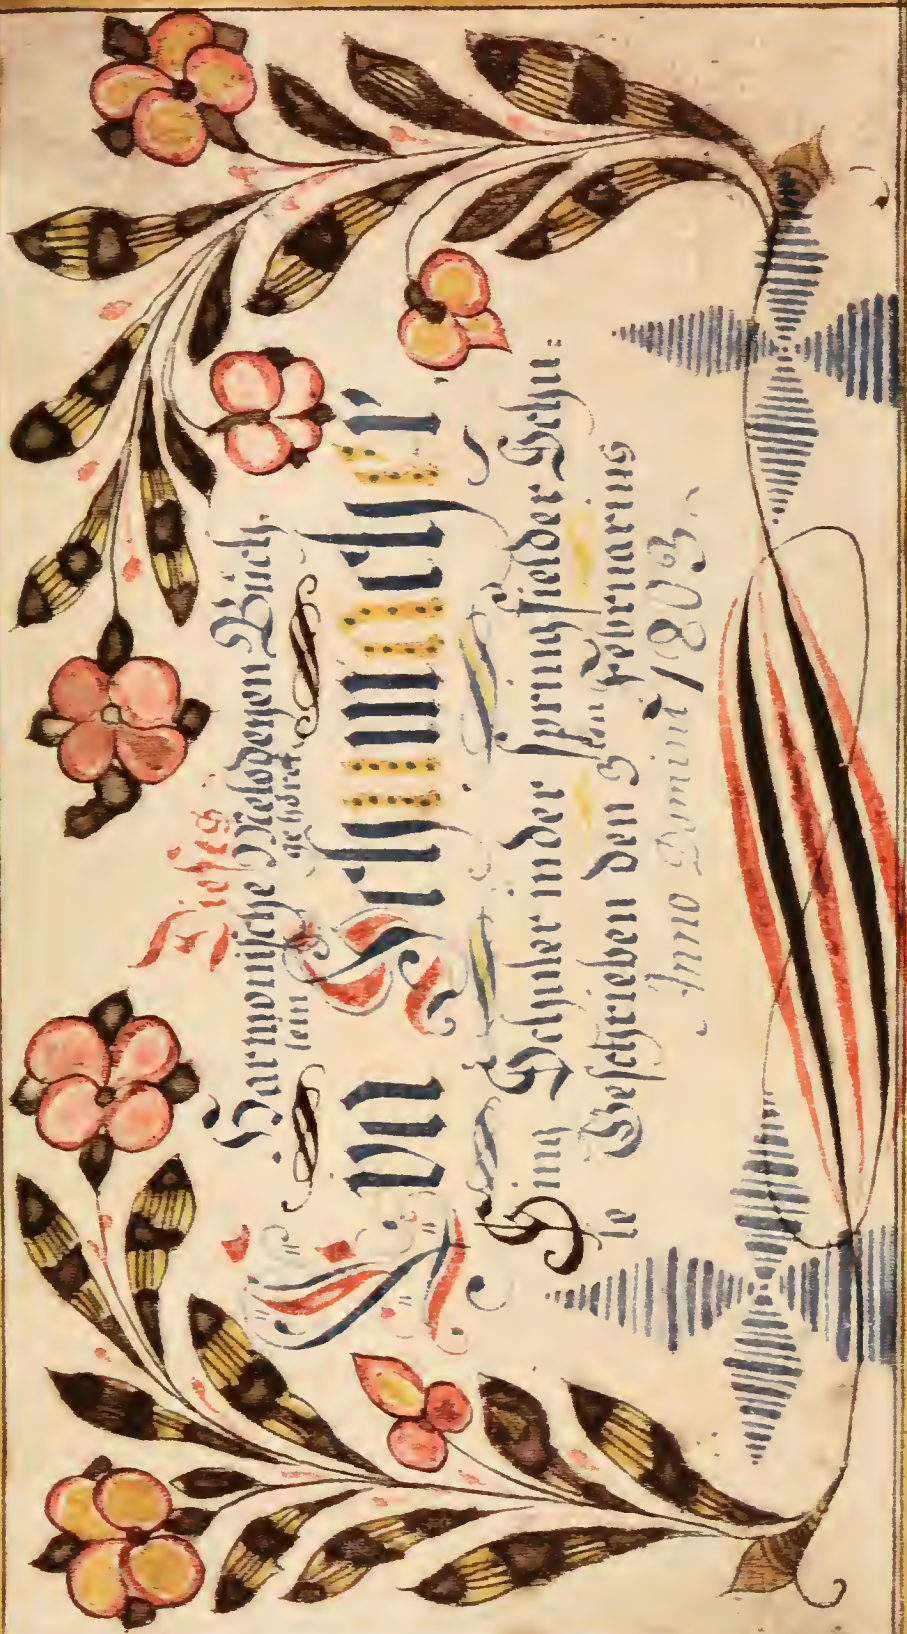 Dieses
Harmonische Melodeyen Büch.
lein gehöret
Eva Schumacher
Sing Schuler in der springfielder Schu=
le Geschrieben den 3ten Februarius
Anno Domini 1803.